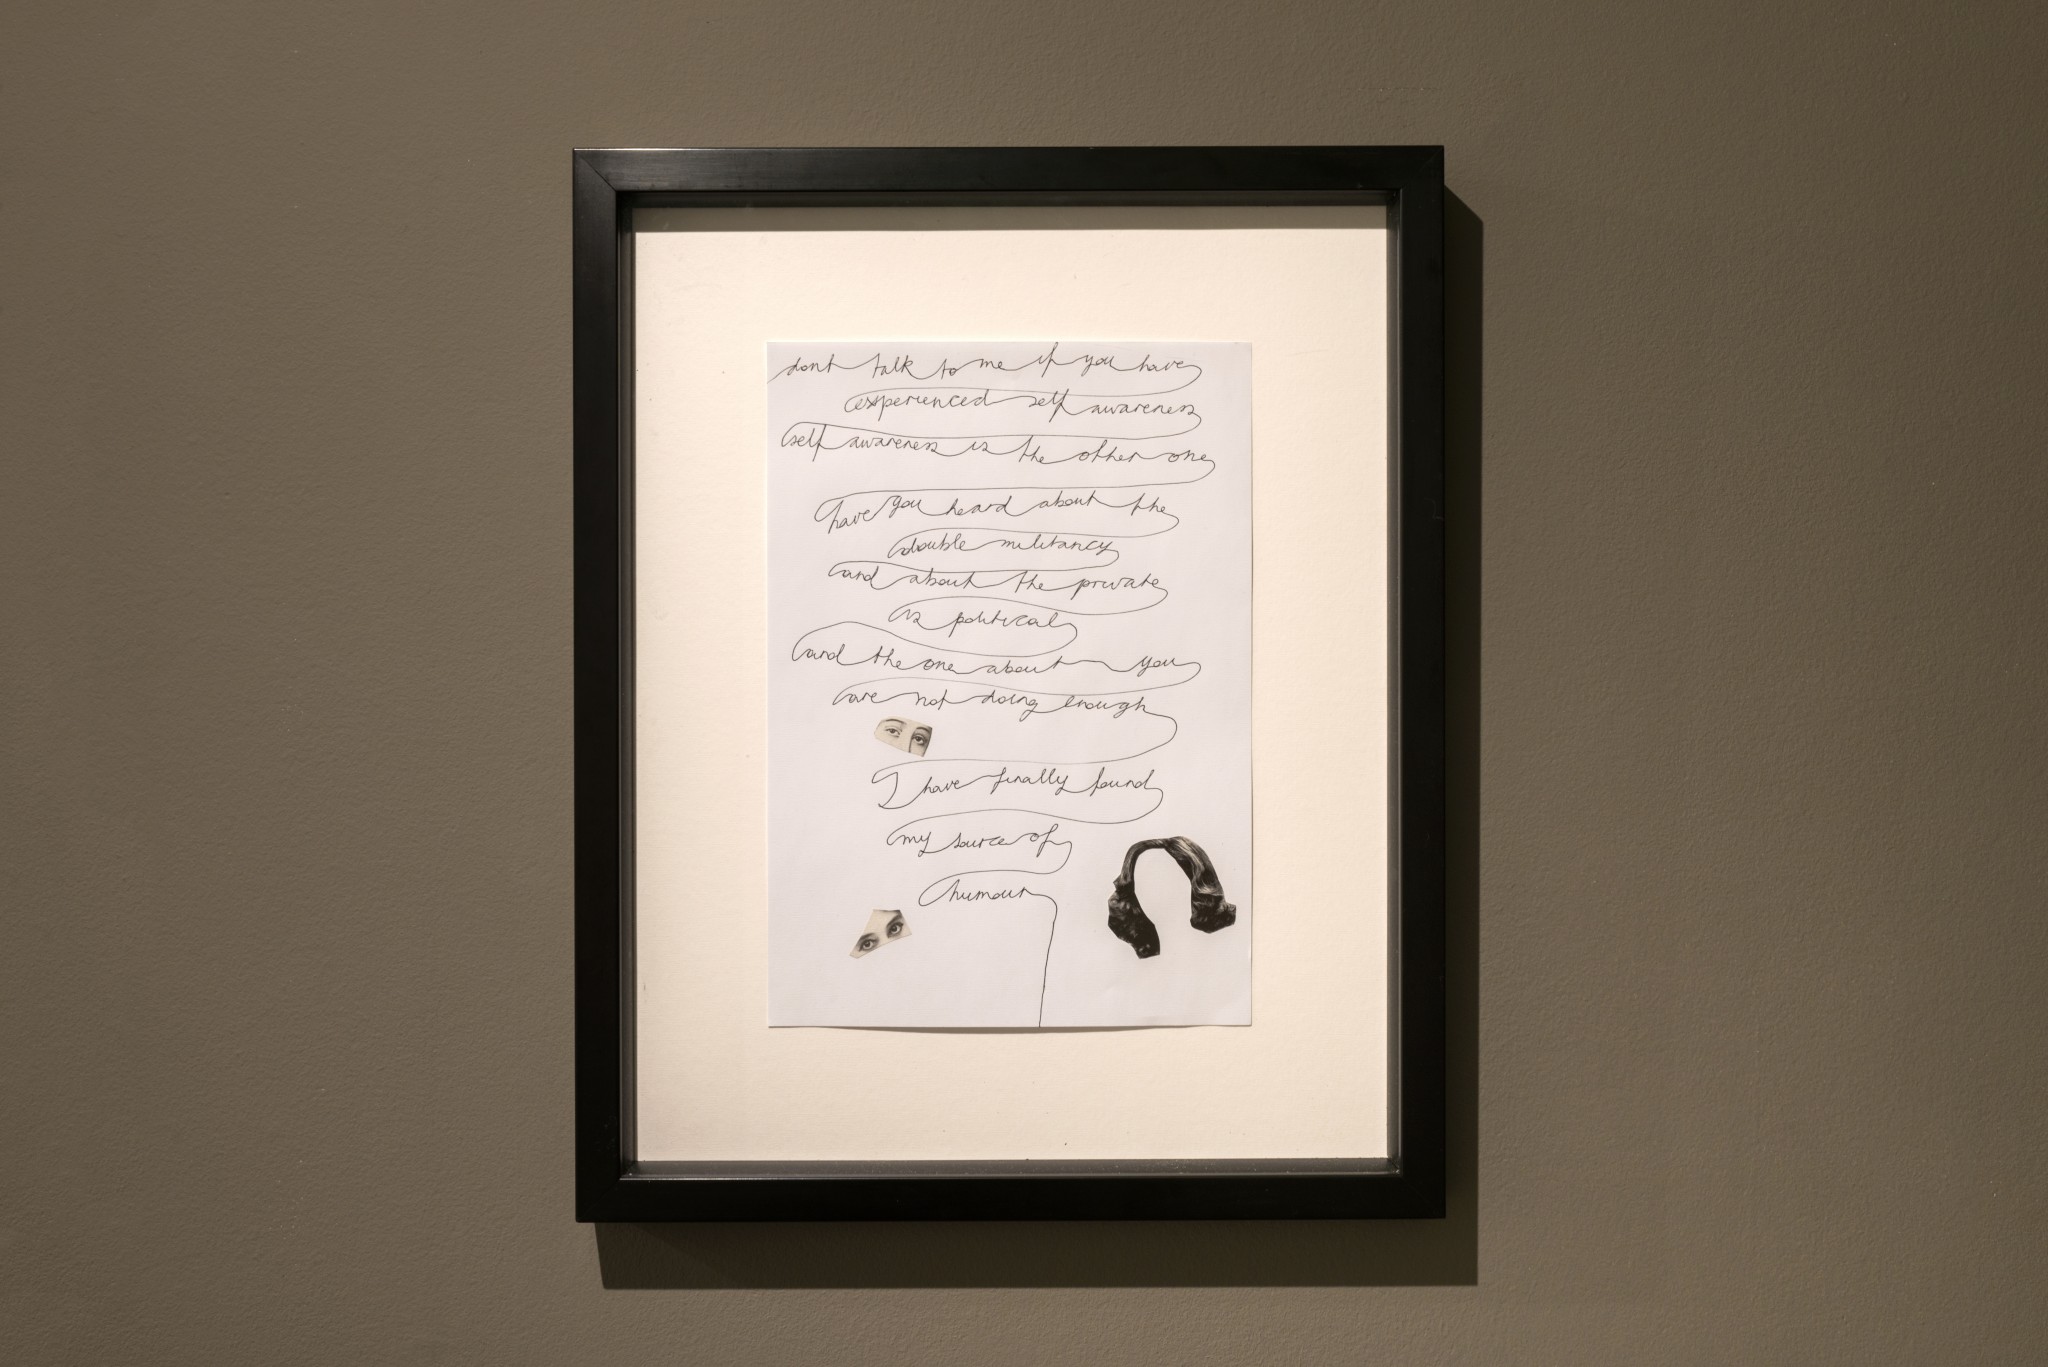 dont talk to me if you have
experienced self awareness
self awareness is the other one
have you heard about the
double militancy
and about the private
is political
and the one about you
are not doing enough
I have finally found
my source of
humour